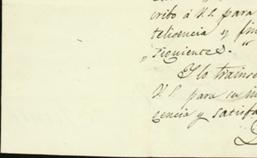 cribo á V.S. para
teligencia y fin
siguientes."
Y lo trans
V.S. para su in
gencia y satisfa